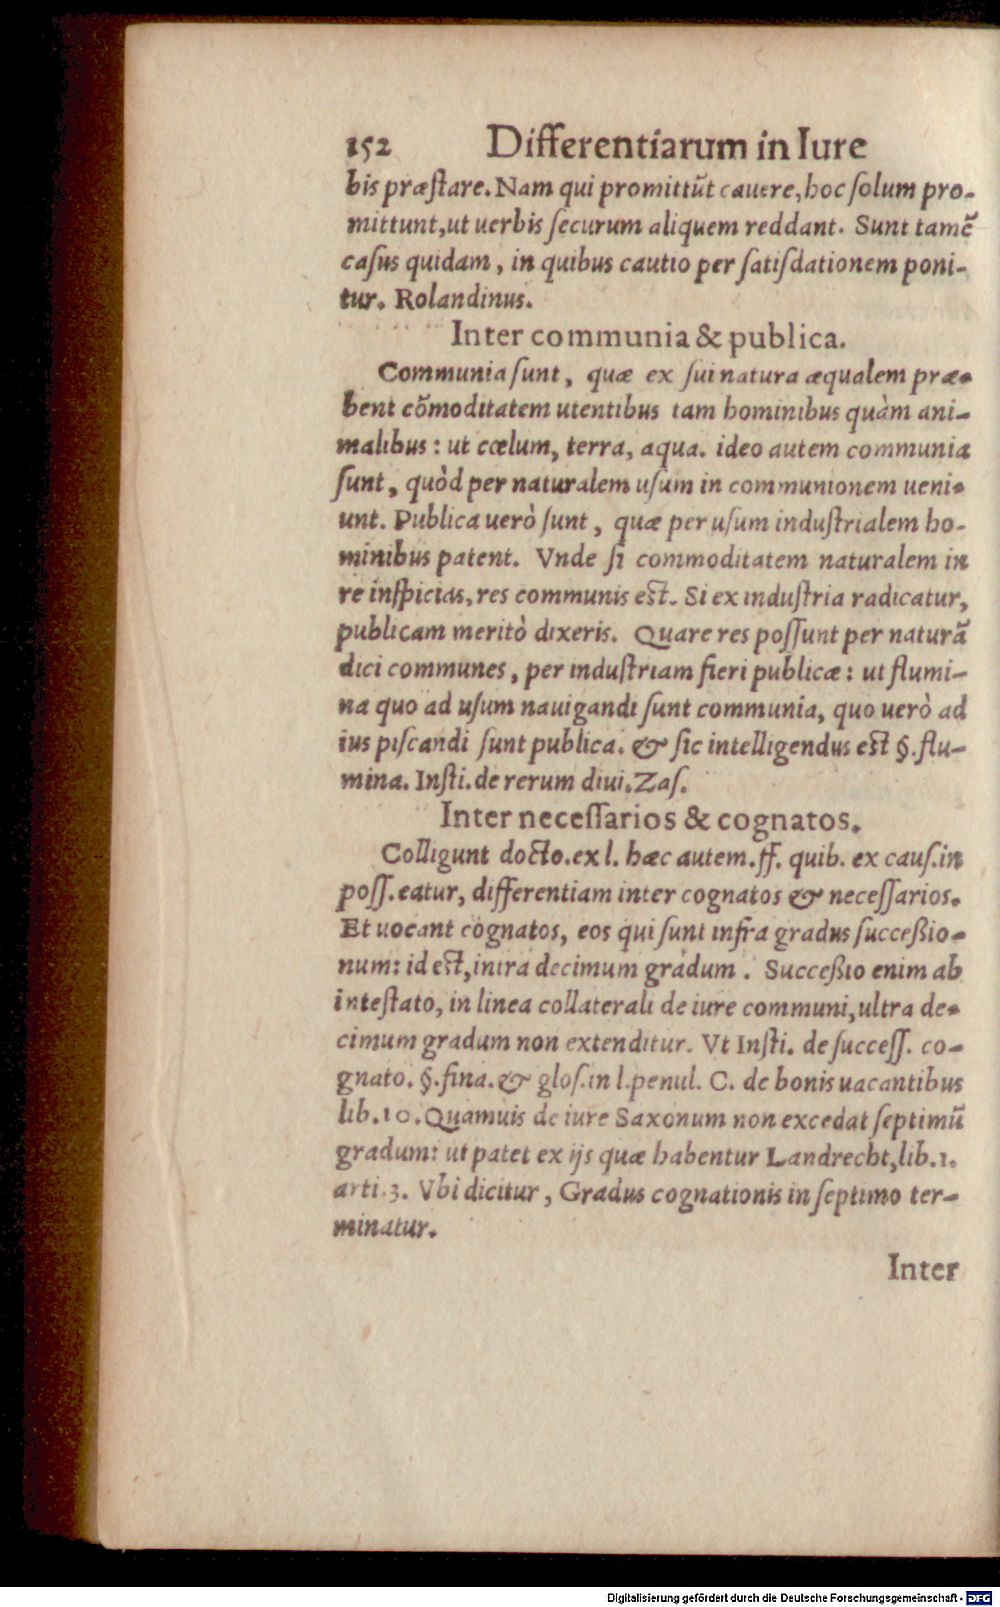 152 Differentiarum in Iure
bis præſtare. Nam qui promittũt cauere, hoc ſolum pro-
mittunt, ut uerbis ſecurum aliquem reddant. Sunt tamẽ
caſus quidam, in quibus cautio per ſatiſdationem poni-
tur. Rolandinus.
Inter communia & publica.
Communia ſunt, quæ ex ſui natura æqualem præ-
bent cõmoditatem utentibus tam hominibus quàm ani-
malibus: ut cœlum, terra, aqua. ideo autem communia
ſunt, quòd per naturalem uſum in communionem ueni-
unt. Publica uerò ſunt, quæ per uſum induſtrialem ho-
minibus patent. Vnde ſi commoditatem naturalem in
re inſpicias, res communis eſt. Si ex induſtria radicatur,
publicam meritò dixeris. Quare res poſſunt per naturã
dici communes, per induſtriam fieri publicæ: ut flumi-
na quo ad uſum nauigandi ſunt communia, quo uerò ad
ius piſcandi ſunt publica. & ſic intelligendus eſt §. flu-
mina. Inſti. de rerum diui. Zaſ.
Inter neceſſarios & cognatos.
Colligunt docto. ex l. hæc autem. ff. quib. ex cauſ. in
poſſ. eatur, differentiam inter cognatos & neceſſarios.
Et uocant cognatos, eos qui ſunt infra gradus ſucceßio-
num: id eſt, intra decimum gradum. Succeßio enim ab
inteſtato, in linea collaterali de iure communi, ultra de-
cimum gradum non extenditur. Vt Inſti. de ſucceſſ. co-
gnato. §. fina. & gloſ. in l. penul. C. de bonis uacantibus
lib. 10. Quamuis de iure Saxonum non excedat ſeptimũ
gradum: ut patet ex ijs quæ habentur Landrecht, lib. 1.
arti. 3. Vbi dicitur, Gradus cognationis in ſeptimo ter-
minatur.
Inter
Digitalisierung gefördert durch die Deutsche Forschungsgemeinschaft - DFG